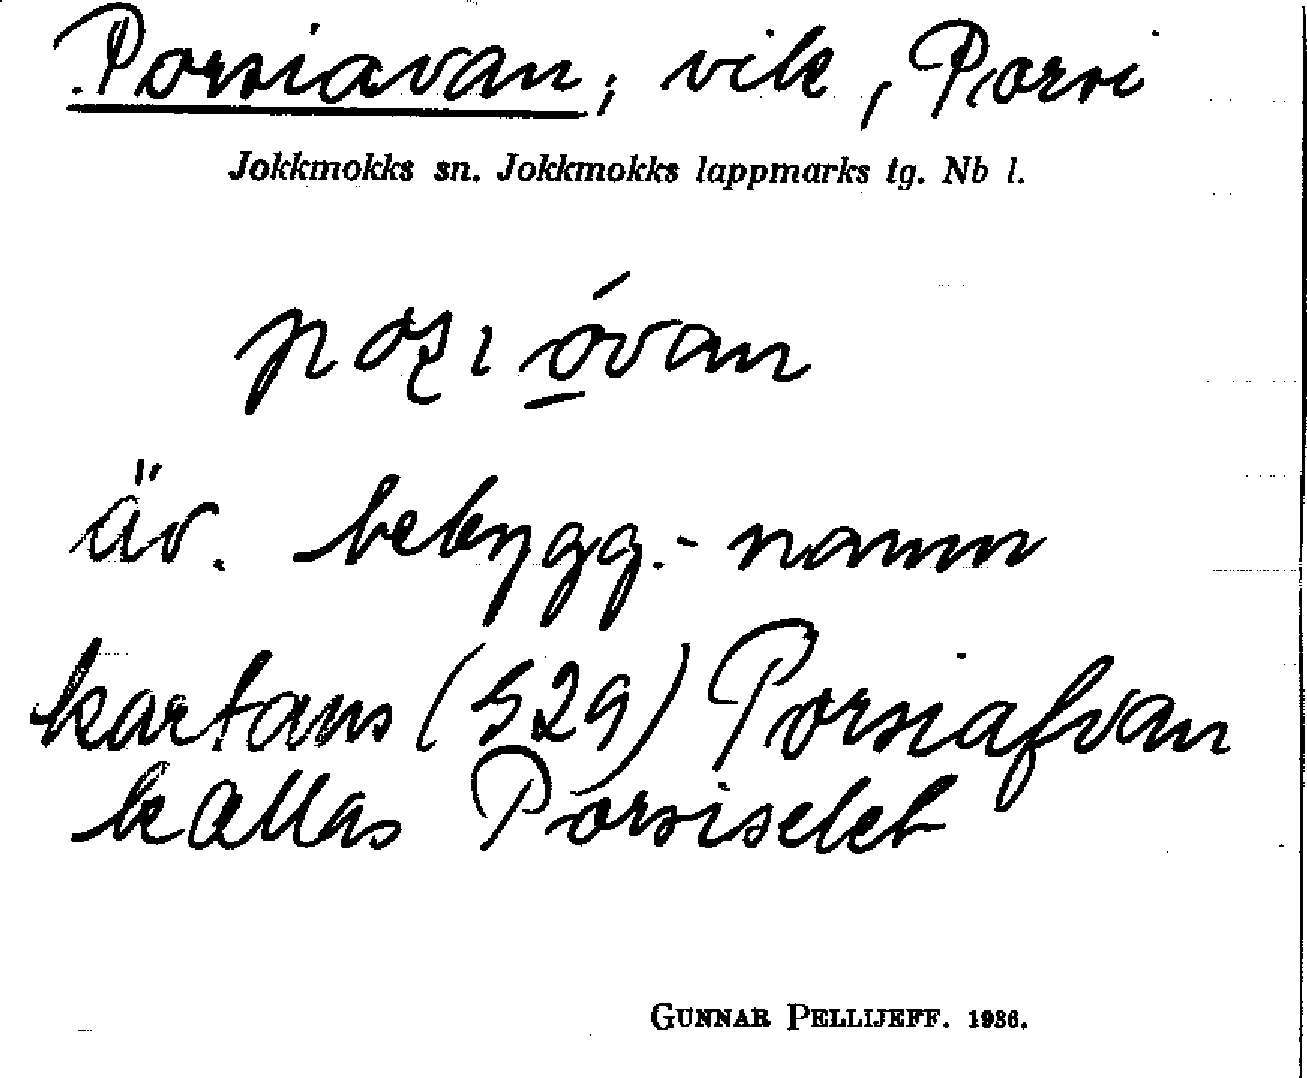 Porsiavan, vik, Porsi
Jokkmokks sn. Jokkmokks lappmarks tg. Nb l.
äv. bebygg.-namn
kartans (529) Porsiafvan
kallas Porsiselet
GUNNAR PELLIJEFF. 1936.